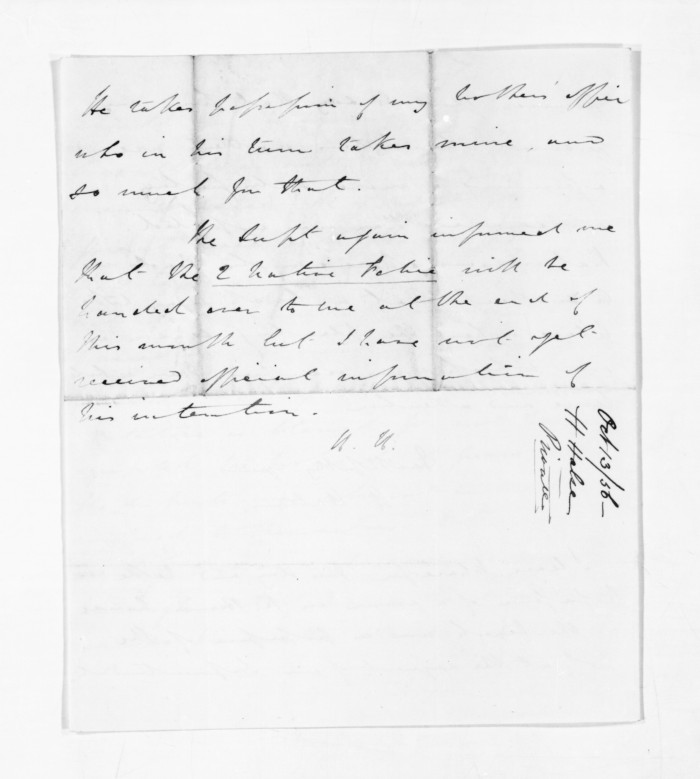 He takes possession of my brother's office
who in his turn takes mine, and
so much for that.
The Supt again informed me
that the 2 Native Police will be
handed over to me at the end of
this month but I have not yet
received official information of
his intention.
H. H.
Oct 13/56
H Halse
Private